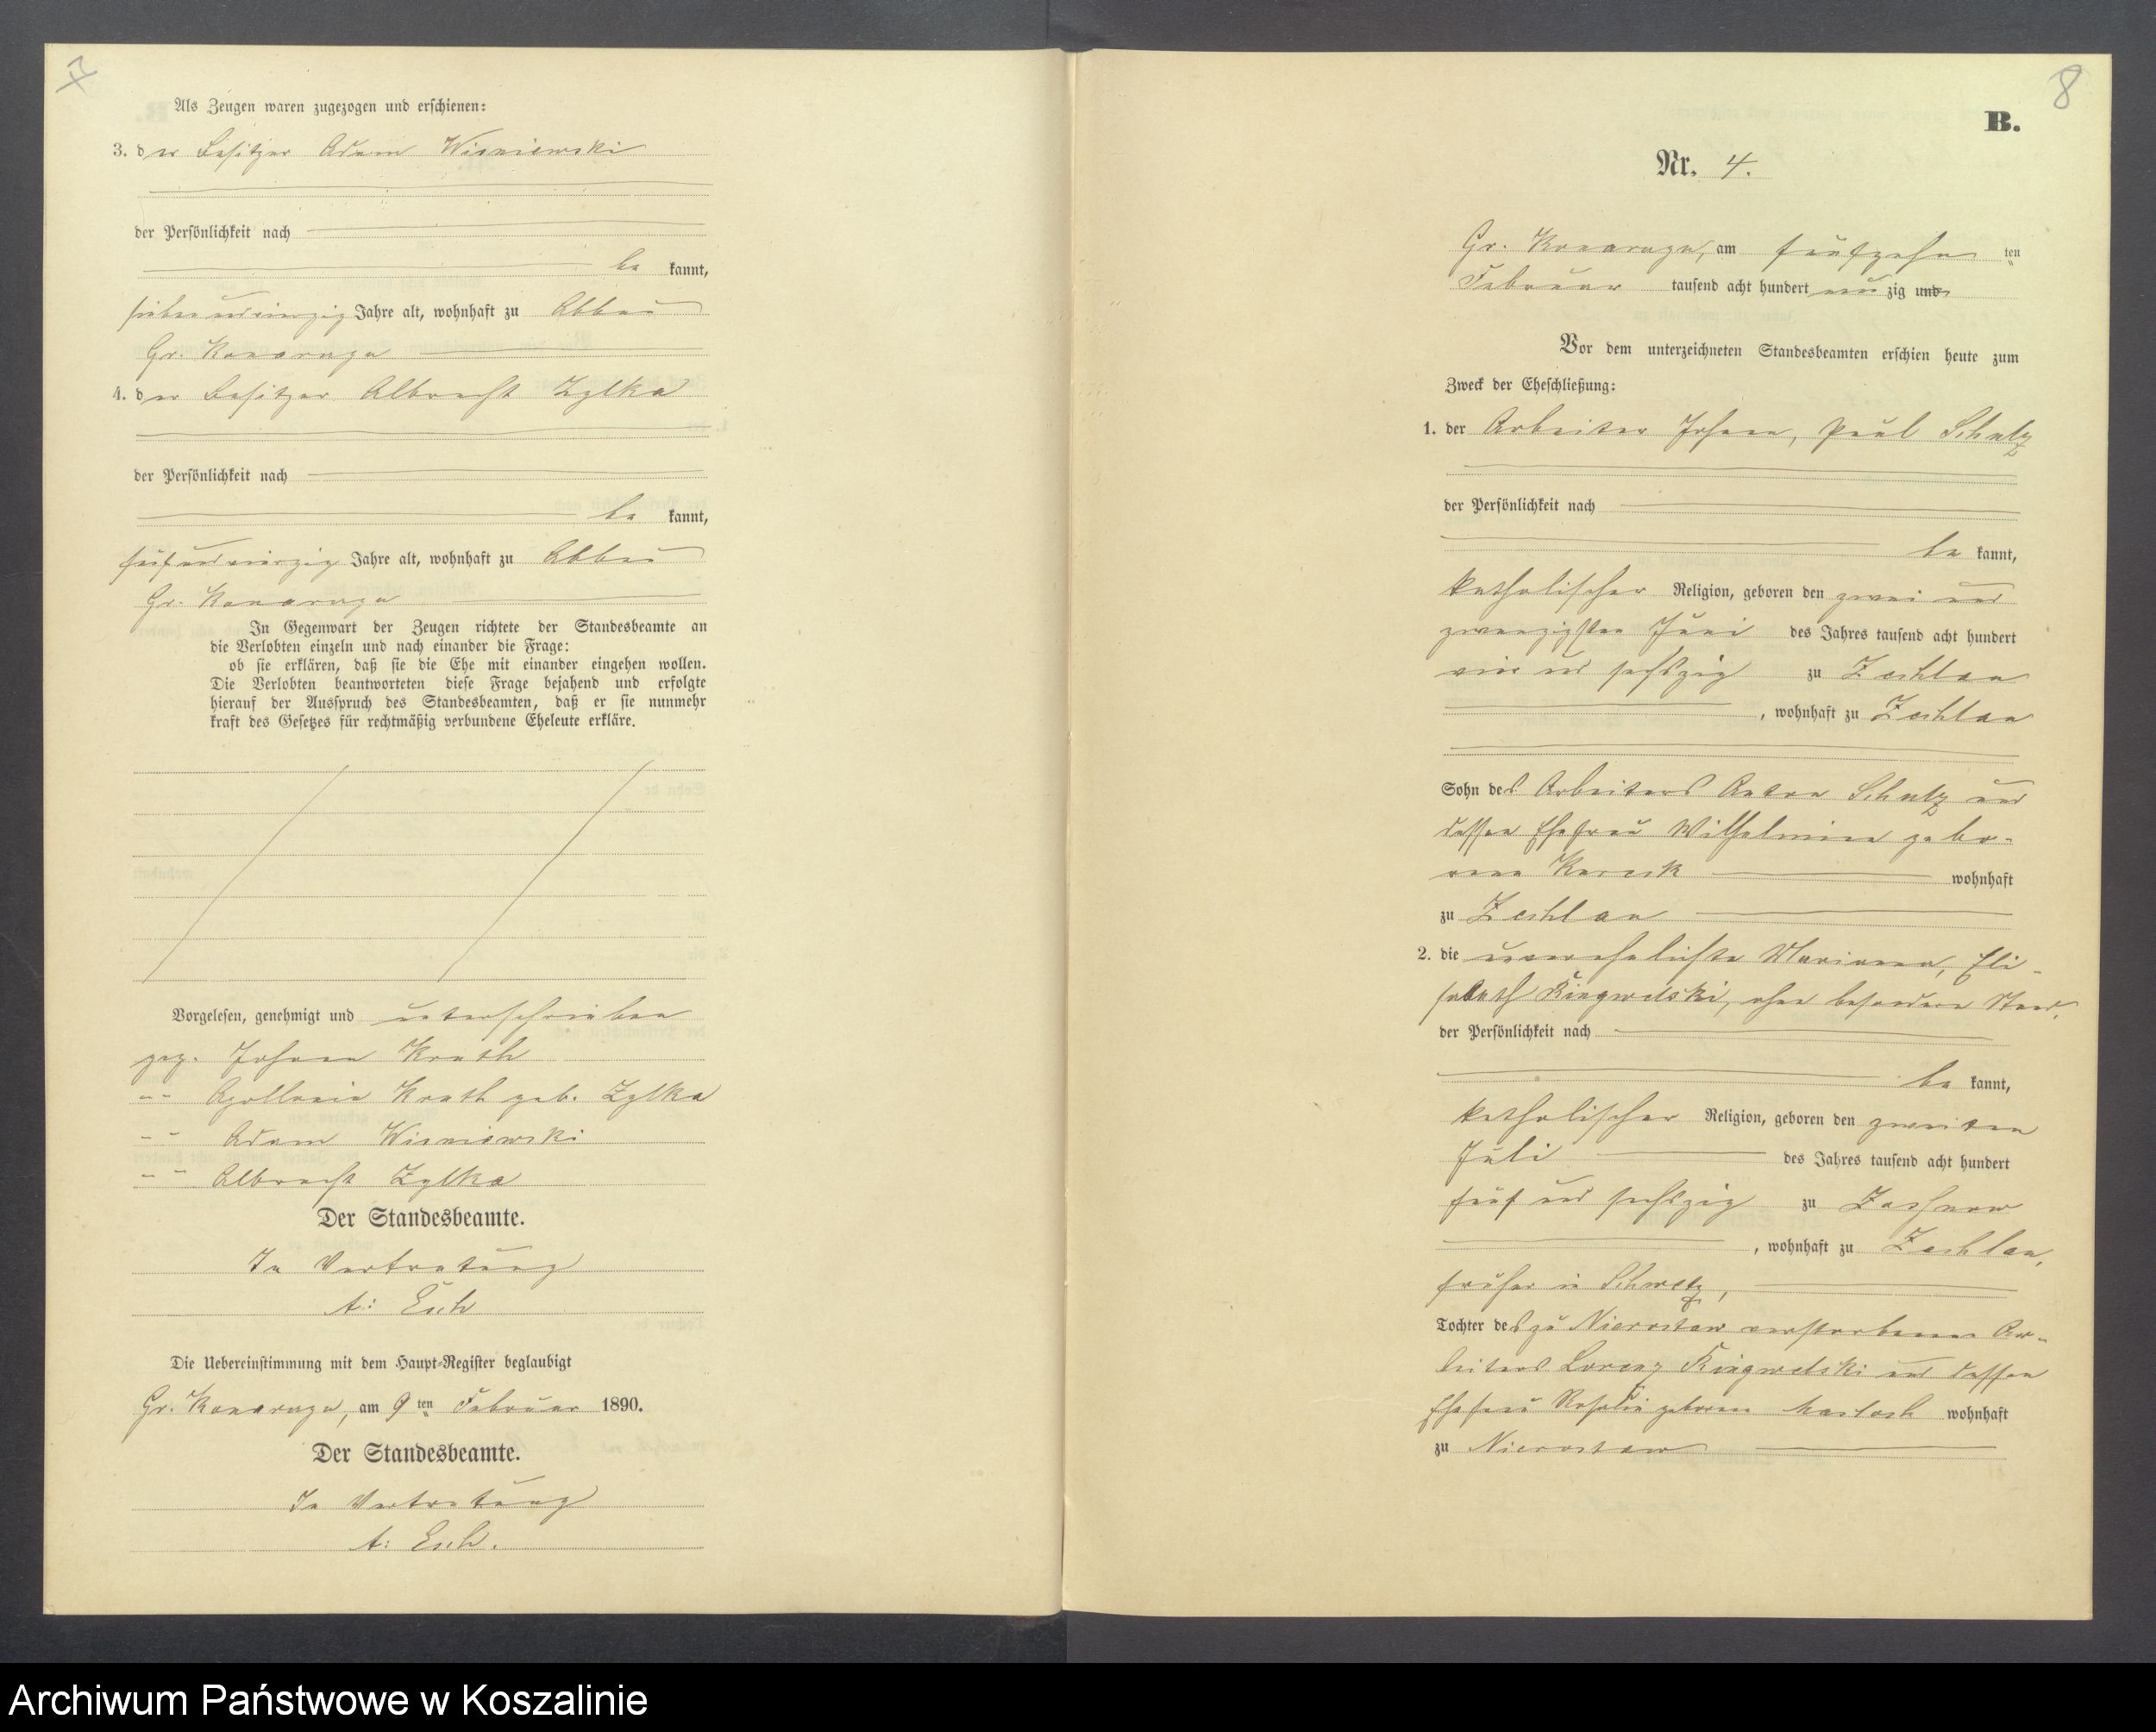 7
Als Zeugen waren zugezogen und erschienen:
3. der Besitzer Adam Wisniewski
der Persönlichkeit nach
be kannt,
siebenundvierzig Jahre alt, wohnhaft zu Abbau
Gr. Konarzyn
4. der Besitzer Albrecht Zylka
der Persönlichkeit nach
be kannt,
fünfundvierzig Jahre alt, wohnhaft zu Abbau
Gr. Konarzyn
In Gegenwart der Zeugen richtete der Standesbeamte an
die Verlobten einzeln und nach einander die Frage:
ob sie erklären, daß sie die Ehe mit einander eingehen wollen.
Die Verlobten beantworteten diese Frage bejahend und erfolgte
hierauf der Ausspruch des Standesbeamten, daß er sie nunmehr
kraft des Gesetzes für rechtmäßig verbundene Eheleute erkläre.
Vorgelesen, genehmigt und unterschrieben
gez. Johann
"" Apollonia geb. Zylka
"" Adam Wisniewski
"" Albrecht Zylka
Der Standesbeamte.
In Vertretung
Die Uebereinstimmung mit dem Haupt-Register beglaubigt
Gr. Konarzyn, am 9 ten Februar 1890.
Der Standesbeamte.
In Vertretung
8
B.
Nr. 4.
Gr. Konarzyn, am fünfzehn ten
Februar tausend acht hundert neunzig und
Vor dem unterzeichneten Standesbeamten erschien heute zum
Zweck der Eheschließung:
1. der Arbeiter Johann, Paul Schulz
der Persönlichkeit nach
be kannt,
katholischer Religion, geboren den zwei und
zwanzigsten Juni des Jahres tausend acht hundert
vier und sechszig zu Zechlau
, wohnhaft zu Zechlau
Sohn des Arbeiters Anton Schulz und
dessen Ehefrau Wilhelmine gebo-
rene wohnhaft
zu Zechlau
2. die unverehelichte Marianna, Eli-
sabeth ohne besondern Stand,
der Persönlichkeit nach
be kannt,
katholischer Religion, geboren den zweiten
Juli des Jahres tausend acht hundert
fünf und sechszig zu
, wohnhaft zu Zechlau,
früher in Schwetz,
Tochter des zu verstorbenen Ar-
beiters Lorenz und dessen
Ehefrau Rosalie geborene wohnhaft
zu
Archiwum Państwowe w Koszalinie